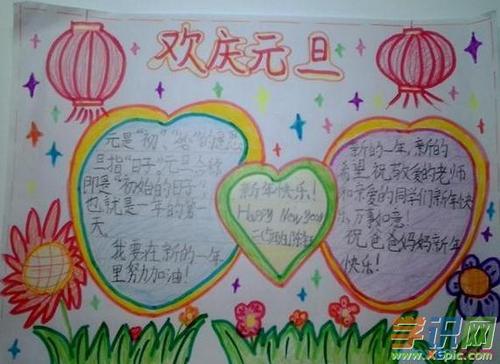 欢庆元旦
元是“初”“始”的意思
旦指“日子”。元旦合称
即是“初始的日子”
也就是一年的第一
天。
我要在新的一年
里努力加油！
新年快乐！
Happy New year
新的一年，新的
希望，祝敬爱的老师
和亲爱的同学们新年快
乐，万事如意！
祝爸爸妈妈新年
快乐！
学识网
www.XSpic.com